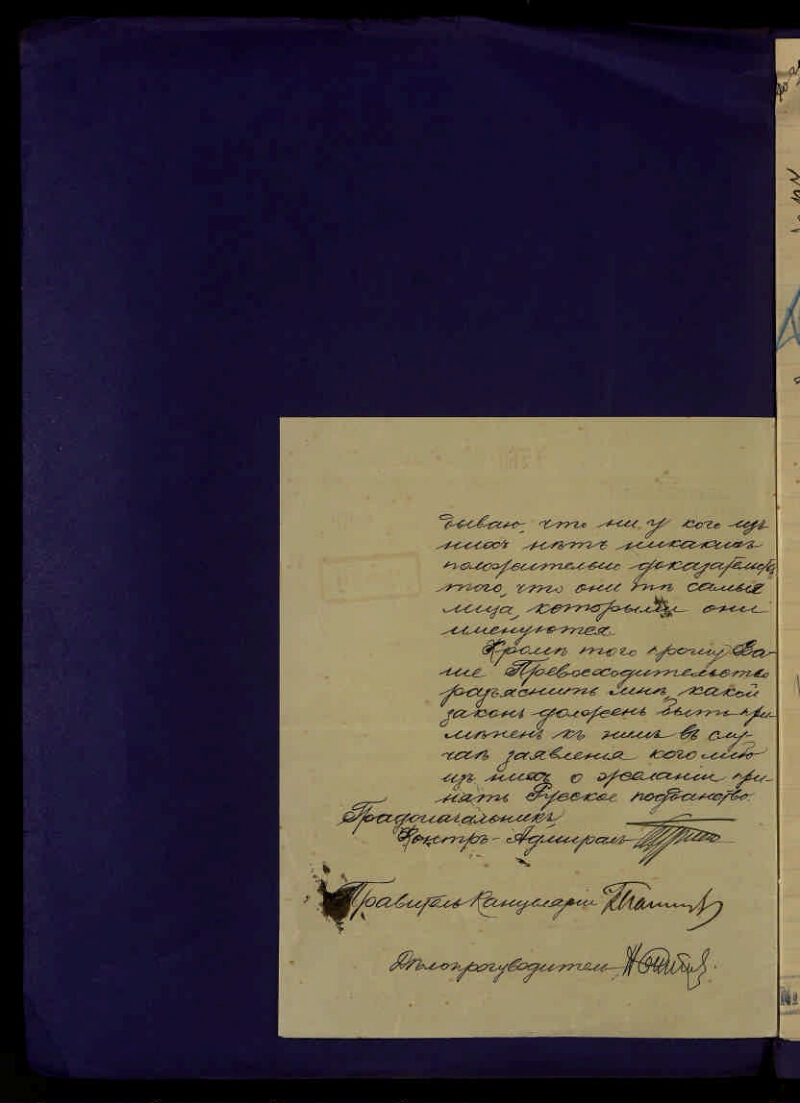 дываю, что ни у кого изъ
нихъ нѣтъ никакихъ
положительно доказательствъ
того, что они тѣ самыя
лица, которыми они
именуются.
Кромѣ того прошу Ва-
ше Превосходительство
разъяснить мнѣ, какой
законъ долженъ быть при-
мѣненъ къ нимъ въ слу-
чаѣ заявленія кого либо
изъ нихъ о желаніи при-
нять Русское подданство.
Градоначальникъ,
Контръ-Адмиралъ
Правитель Канцеляріи
Дѣлопроизводитель